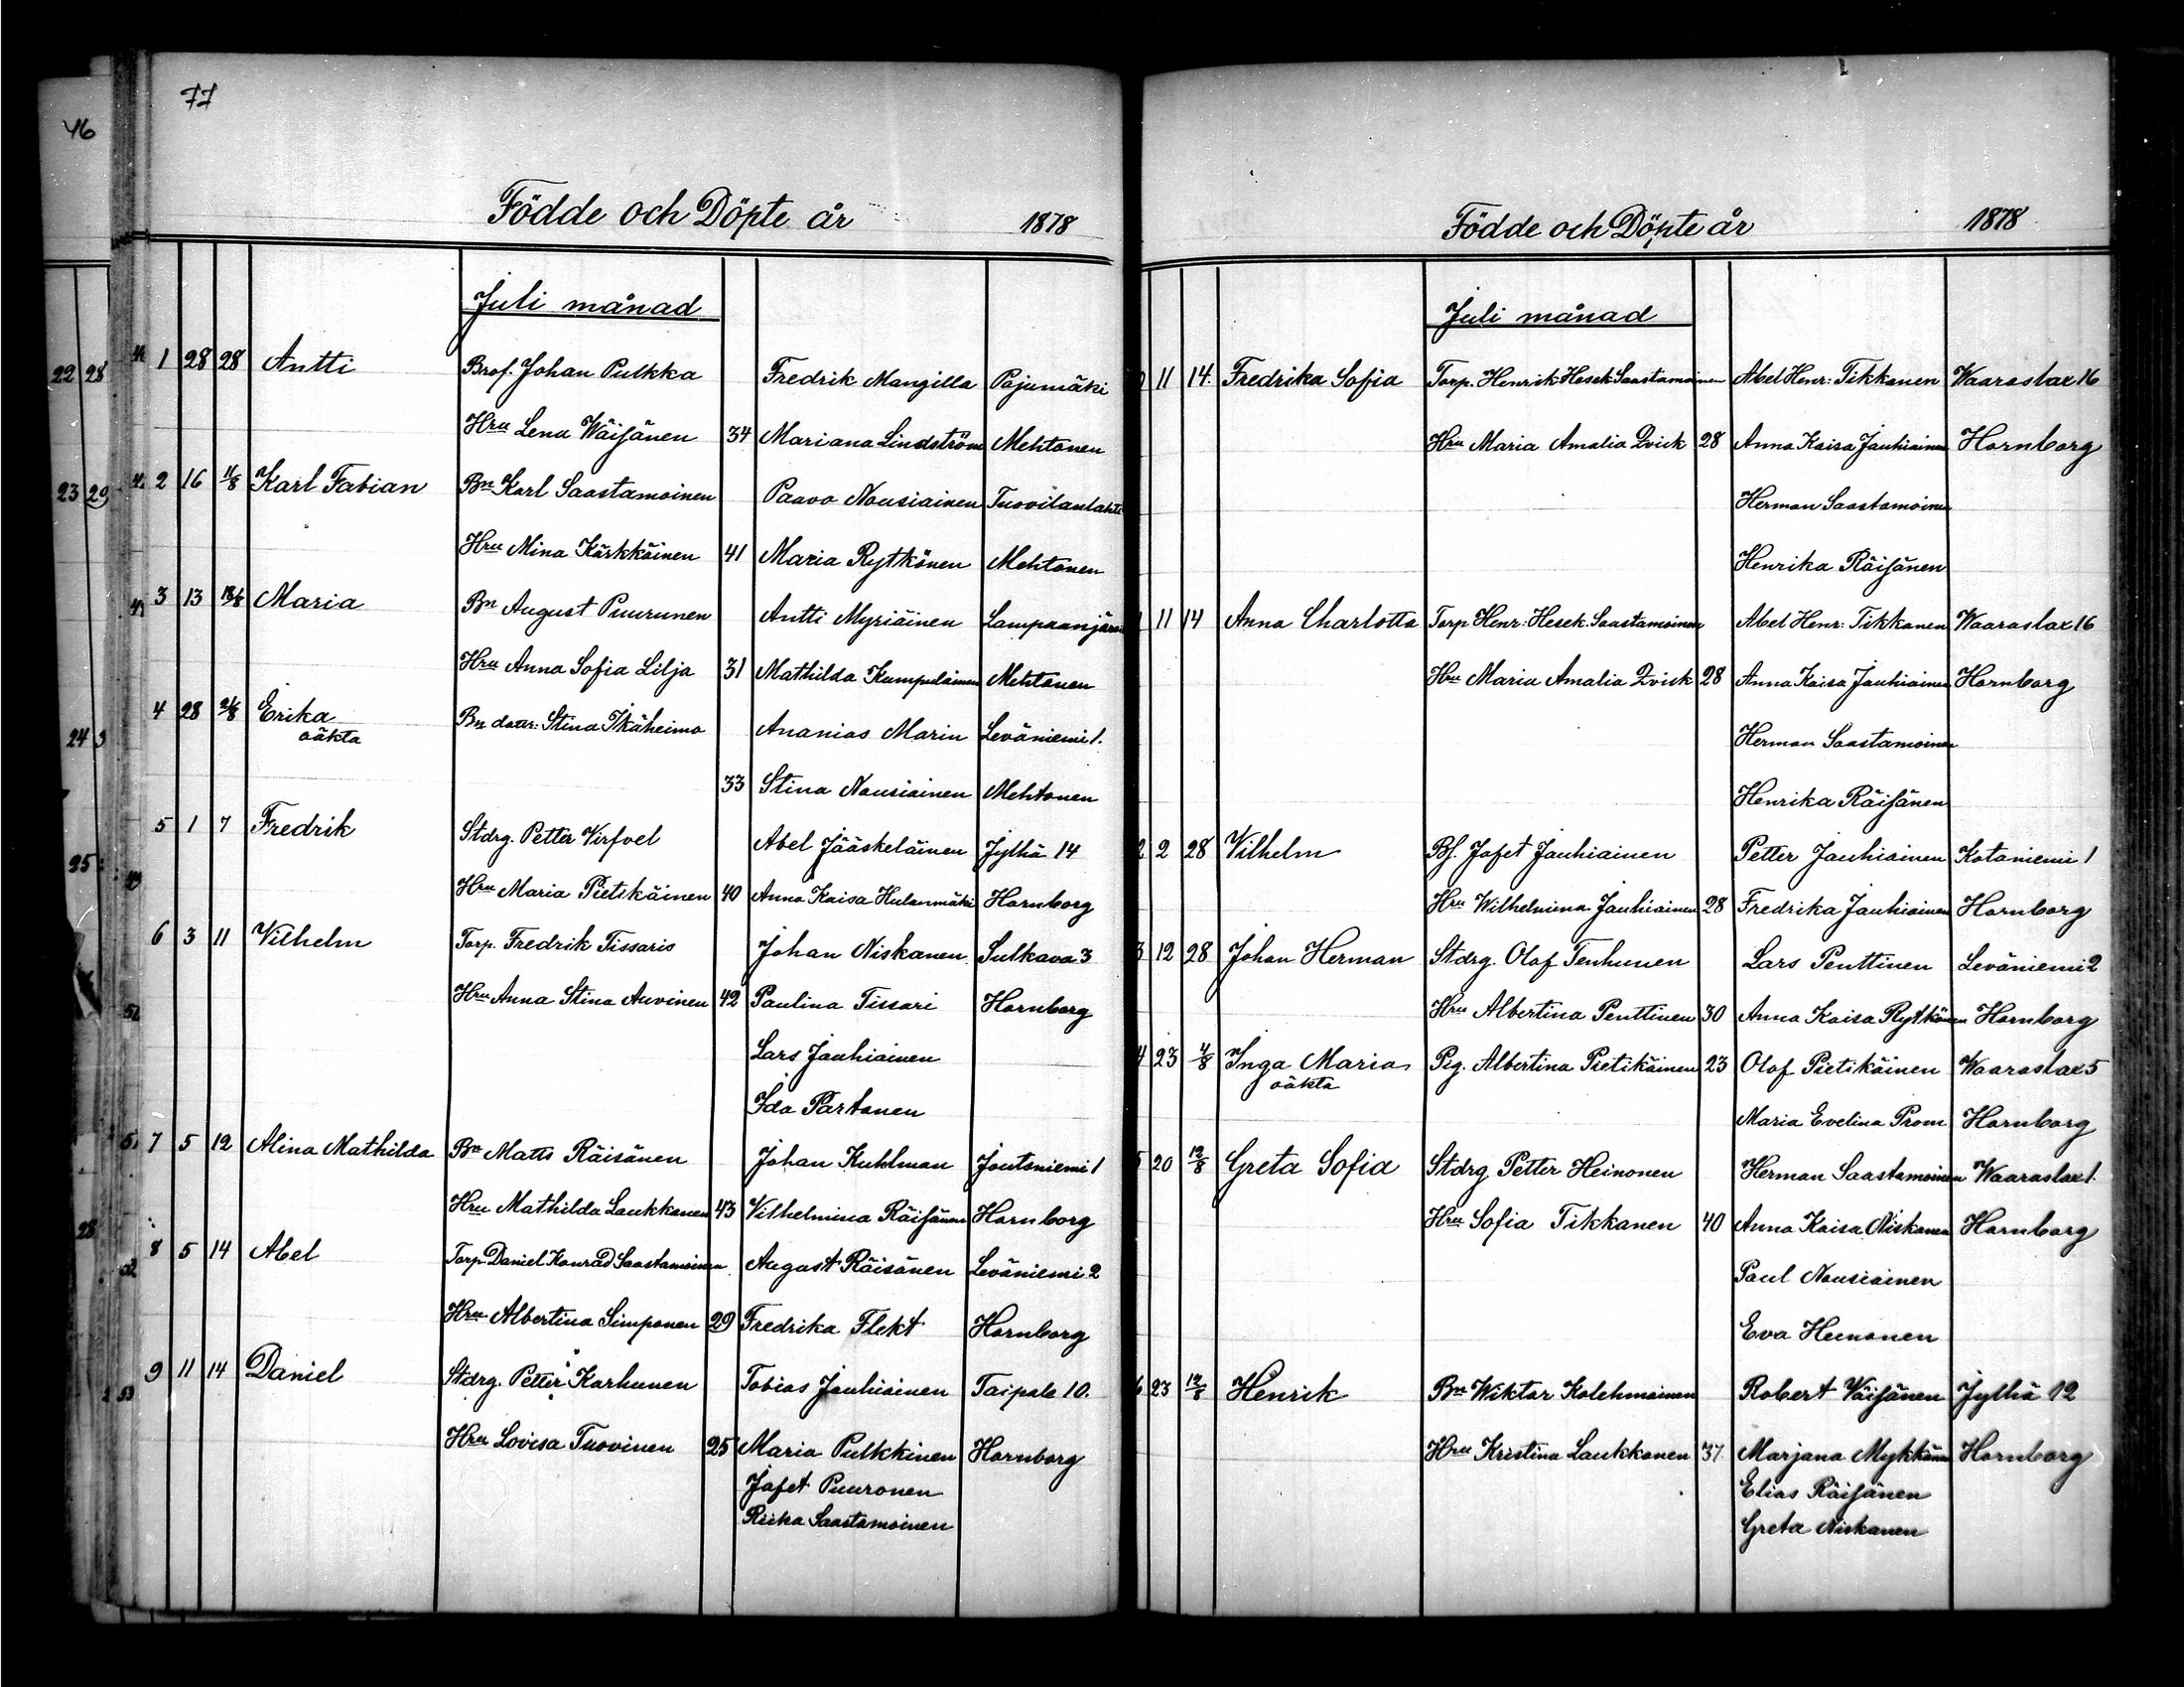 77
46
Födde och Döpte år 1878
Juli månad
1 28 28 Antti Brof. Johan Pulkka Fredrik Mangilla Pajumäki
Hru Lena Wäisänen 34 Mariana Lindström Mehtonen
2 16 11/8 Karl Fabian Bn Karl Saastamoinen Paavo Nousiainen Tuovilanlahti
Hru Mina Kärkkäinen 41 Maria Rytkönen Mehtonen
3 13 18/8 Maria Bn August Puurunen Antti Myriäinen Lampaanjärvi
Hru Anna Sofia Lilja 31 Mathilda Kumpulainen Mehtonen
4 28 Erika Bn dotter: Stina Ikäheimo Ananias Marin Leväniemi 1.
oäkta
33 Stina Nousiainen Mehtonen
5 1 7 Fredrik Stdrg. Petter Virfvel Abel Jääskeläinen Jylhä 14
Hru Maria Pietikäinen 40 Anna Kaisa Hulanmäki Hornborg
6 3 11 Vilhelm Torp. Fredrik Tissaris Johan Niskanen Sulkava 3
Hru Anna Stina Auvinen 42 Paulina Tissari Hornborg
Lars Jauhiainen
Ida Partanen
7 5 12 Alina Mathilda Bn Matts Räisänen Johan Kuhlman Joutsniemi 1
Hru Mathilda Laukkanen 43 Vilhelmina Räisänen Hornborg
8 5 14 Abel Torp Daniel Konrad Saastamoinen August Räisänen Leväniemi 2
Hru Albertina Simponen 29 Fredrika Flekt Hornborg
9 11 14 Daniel Stdrg. Petter Karhunen Tobias Jauhiainen Taipale 10.
Hru Lovisa Tuovinen 25 Maria Pulkkinen Hornborg
Jafet Puuronen
Riika Saastamoinen
Födde och Döpte år 1878
Juli månad
11 14. Fredrika Sofia Torp. Henrik Hesek Saastamoinen Abel Henr: Tikkanen Waaraslax 16
Hru Maria Amalia Qvick 28 Anna Kaisa Jauhiainen Hornborg
Herman Saastamoinen
Henrika Räisänen
11 14 Anna Charlotta Torp Henr: Hesek. Saastamoinen Abel Henr: Tikkanen Waaraslax 16
Hru Maria Amalia Qvick 28 Anna Kaisa Jauhiainen Hornborg
Herman Saastamoinen
Henrika Räisänen
2 2 28 Vilhelm Bf. Jafet Jauhiainen Petter Jauhiainen Kotaniemi 1
Hru Wilhelmina Jauhiainen 28 Fredrika Jauhiainen Hornborg
3 12 28 Johan Herman Stdrg. Olof Tenhunen Lars Penttinen Leväniemi 2
Hru Albertina Penttinen 30 Anna Kaisa Rytkönen Hornborg
4 23 4/8 Inga Maria Pig. Albertina Pietikäinen 23 Olof Pietikäinen Waaraslax 5
oäkta
Maria Evelina Prom Hornborg
5 20 12/8 Greta Sofia Stdrg Petter Heinonen Herman Saastamoinen Waaraslax 1.
Hru Sofia Tikkanen 40 Anna Kaisa Niskanen Hornborg
Paul Nousiainen
Eva Heinonen
6 23 12/8 Henrik Bn Wiktor Kolehmainen Robert Väisänen Jylhä 12
Hru Kristina Laukkanen 37. Marjana Mykkänen Hornborg
Elias Räisänen
Greta Niskanen